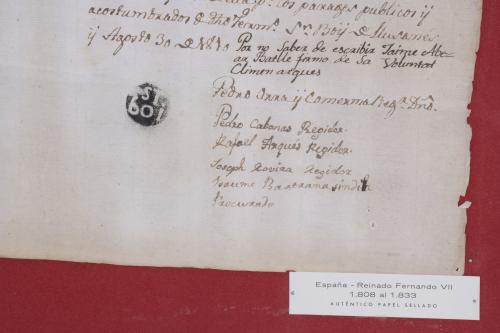 los parages publicos y
acostumbrados de dho termº. Sn. Boy de Llusanes
y Agosto 30 de 1810
Por no Saber de escribir Jaime
Batlle firmo de Sa Voluntat
Climen arques
Pedro y Comerma
Pedro Cabanas Regidor.
Rafael Arqués Regidor.
Joseph Rovira Regidor
Jaume sindich
Procurado
S
601
España - Reinado Fernando VII
1.808 al 1.833
AUTÉNTICO PAPEL SELLADO